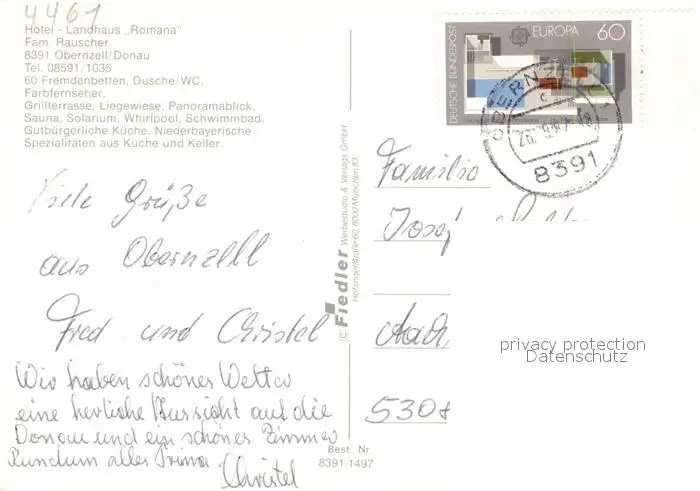 4461
Hotel - Landhaus „Romana"
Fam. Rauscher
8391 Obernzell/Donau
Tel. 08591/1035
60 Fremdenbetten, Dusche/WC,
Farbfernseher,
Grillterrasse, Liegewiese, Panoramablick,
Sauna, Solarium, Whirlpool, Schwimmbad.
Gutbürgerliche Küche. Niederbayerische
Spezialitäten aus Küche und Keller.
DEUTSCHE BUNDESPOST
EUROPA 60
8391
Viele Grüße
aus Obernzell
Fred und Christel
Wir haben schönes Wetter
eine herliche Aussicht auf die
Donau und ein schönes Zimmer
Rundum alles Prima
Christel
Best. Nr.
8391/1497
© Fiedler Werbestudio & Verlags GmbH
Hofangerstraße 60 8000 München 83
Familie
Josef
530
privacy protection
Datenschutz